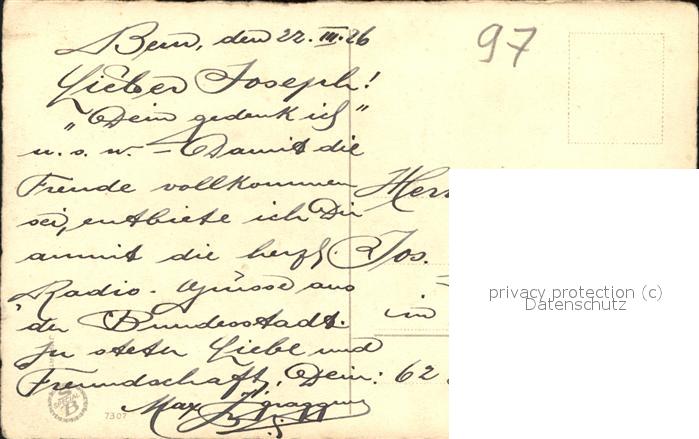 Bern, den 22. III. 26
97
Lieber Joseph!
"Dein gedenk ich"
u. s. w. – Damit die
Freude vollkommen
sei, entbiete ich Dir
anmit die herzl.
Radio-Grüsse aus
der Bundesstadt.
In steter Liebe und
Freundschaft, Dein:
Max
Herr
Jos.
in
62
privacy protection (c)
Datenschutz
SPECIAL
SB
7307